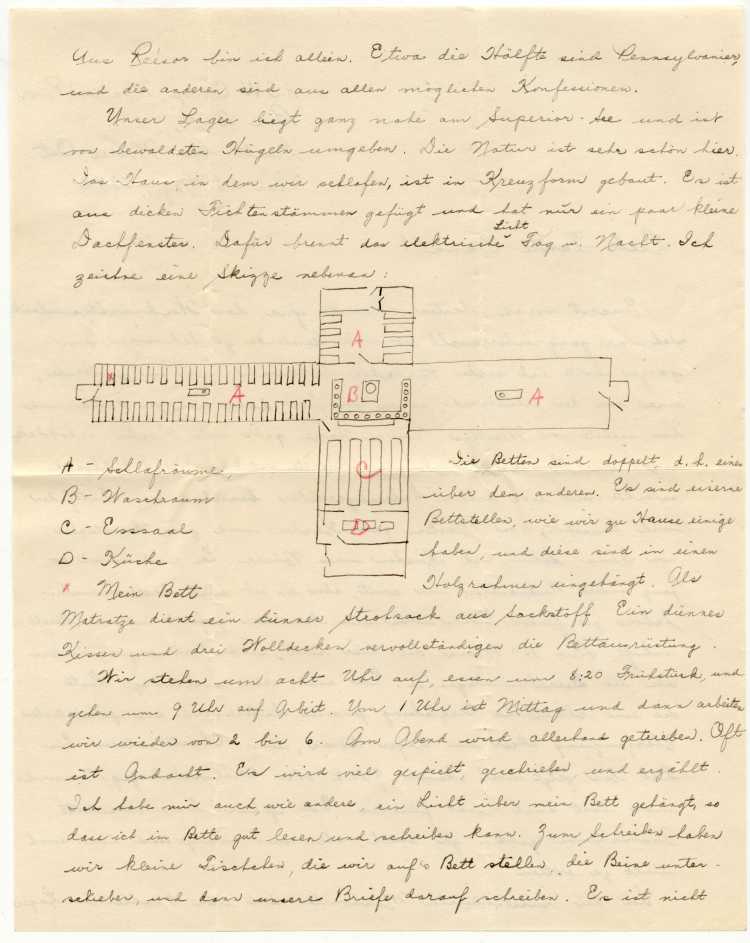 Aus Reesor bin ich allein. Etwa die Hälfte sind Pennsylvanier,
und die anderen sind aus allen möglichen Konfessionen.
Unser Lager liegt ganz nahe am Superior-See und ist
von bewaldeten Hügeln umgeben. Die Natur ist sehr schön hier.
Das Haus, in dem wir schlafen, ist in Kreuzform gebaut. Es ist
aus dicken Fichtenstämmen gefügt und hat nur ein paar kleine
Licht
Dachfenster. Dafür brennt das elektrische Tag u. Nacht. Ich
zeichne eine Skizze nebenan:
A
x
A
B
A
C
D
A - Schlafräume,
B - Waschraum
C - Esssaal
D - Küche
x Mein Bett
Die Betten sind doppelt, d.h. eines
über dem anderen. Es sind eiserne
Bettstellen, wie wir zu Hause einige
haben, und diese sind in einen
Holzrahmen eingehängt. Als
Matratze dient ein dünner Strohsack aus Sackstoff Ein dünnes
Kissen und drei Wolldecken vervollständigen die Bettausrüstung.
Wir stehen um acht Uhr auf, essen um 8:20 Frühstück, und
gehen um 9 Uhr auf Arbeit. Um 1 Uhr ist Mittag und dann arbeiten
wir wieder von 2 bis 6. Am Abend wird allerhand getrieben. Oft
ist Andacht. Es wird viel gespielt, geschrieben, und erzählt.
Ich habe mir auch, wie andere, ein Licht über mein Bett gehängt, so
dass ich im Bette gut lesen und schreiben kann. Zum Schreiben haben
wir kleine Tischchen, die wir auf's Bett stellen, die Beine unter-
schieben, und dann unsere Briefe darauf schreiben. Es ist nicht